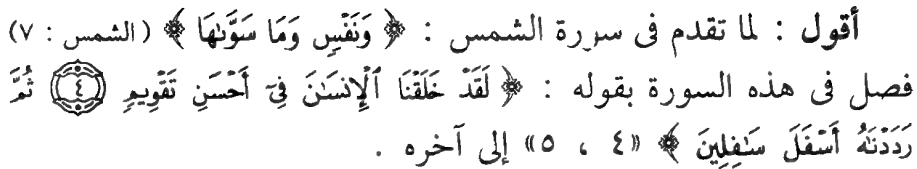 أقول : لما تقدم فى سورة الشمس : ﴿ وَنَفْسٍ وَمَا سَوَّىٰهَا ﴾ ( الشمس : ٧ )
فصل فى هذه السورة بقوله : ﴿ لَقَدْ خَلَقْنَا ٱلْإِنسَٰنَ فِىٓ أَحْسَنِ تَقْوِيمٍ ٤ ثُمَّ
رَدَدْنَٰهُ أَسْفَلَ سَٰفِلِينَ ﴾ «٤ ، ٥» إلى آخره .